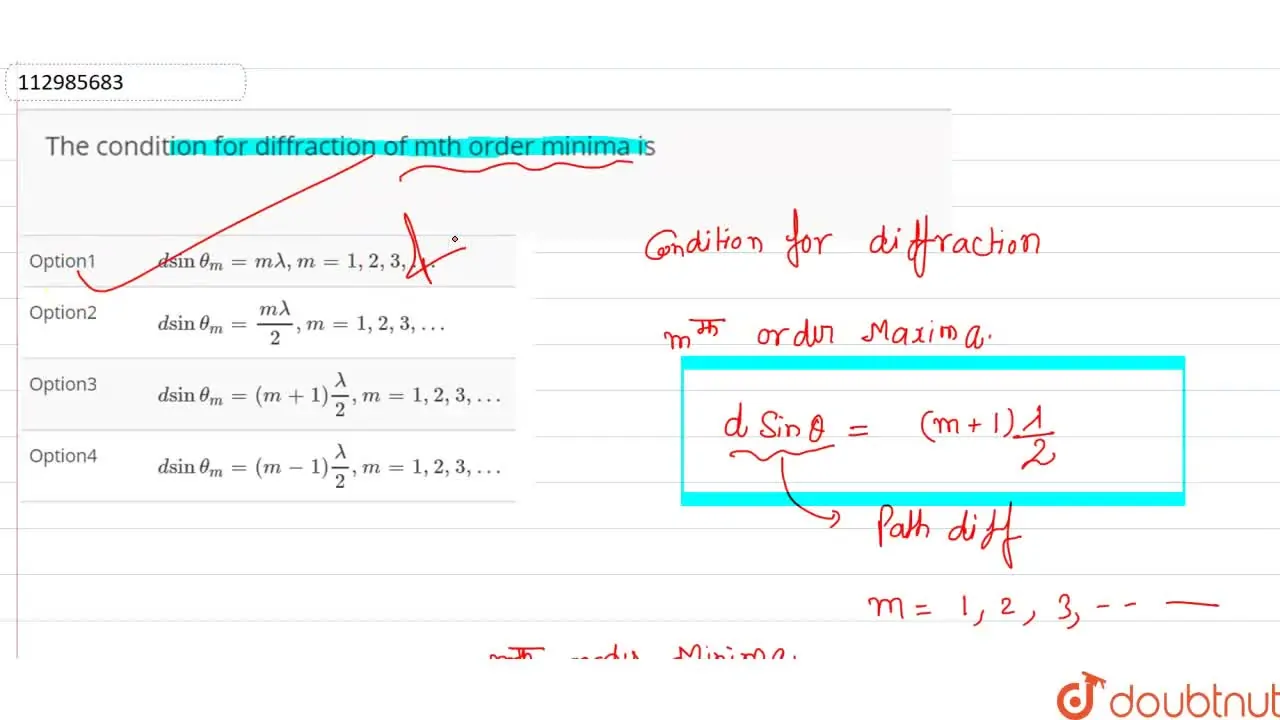 112985683
The condition for diffraction of mth order minima is
Option1 dsin θₘ = mλ, m = 1, 2, 3, ...
Option2 dsin θₘ = mλ/2, m = 1, 2, 3, ...
Option3 dsin θₘ = (m + 1) λ/2, m = 1, 2, 3, ...
Option4 dsin θₘ = (m − 1) λ/2, m = 1, 2, 3, ...
Condition for diffraction
mth order Maxima.
d Sin θ = (m + 1) λ/2
Path diff
m = 1, 2, 3, -- —
mth order Minima.
doubtnut